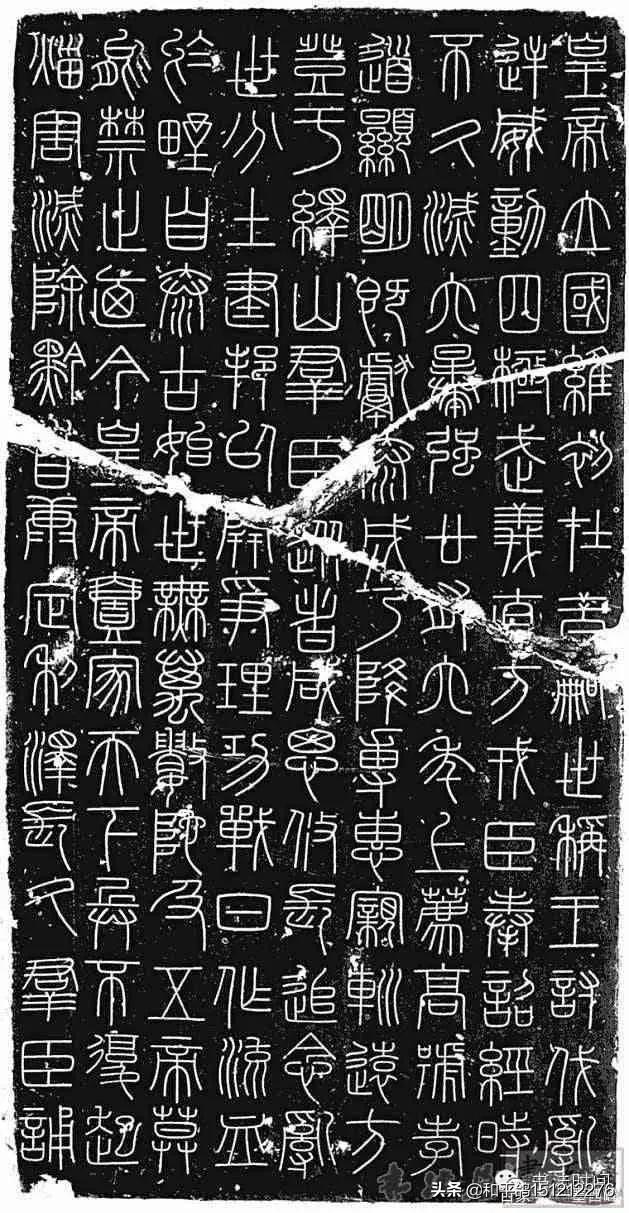 皇帝立國維初在昔嗣世稱王討伐亂
逆威動四極武義直方戎臣奉詔經時
不久滅六暴強廿有六年上薦高號孝
道顯明既獻泰成乃降專惠親巡遠方
登于繹山羣臣從者咸思攸長追念亂
世分土建邦以開爭理功戰日作流血
於野自泰古始世無萬數陀及五帝莫
能禁止迺今皇帝壹家天下兵不復起
災害滅除黔首康定利澤長久羣臣誦
书法时间
头条 @和平鸽151212276